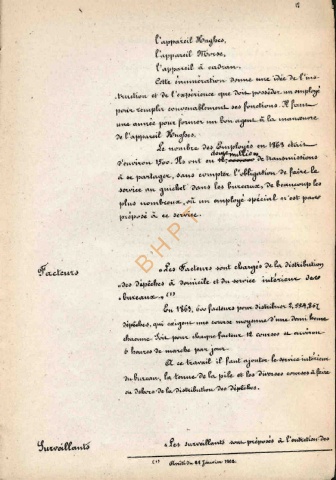 l'appareil Hughes,
l'appareil Morse,
l'appareil à cadran.
Cette énumération donne une idée de l'ins-
truction et de l'expérience que doit posséder un employé
pour remplir convenablement ses fonctions. Il faut
une année pour former un bon agent à la manœuvre
de l'appareil Hughes.
Le nombre des Employés en 1863 était
d'environ 1500. Ils ont eu de transmissions
à se partager, sans compter l'obligation de faire le
service au guichet dans les bureaux, de beaucoup les
plus nombreux, où un employé spécial n'est pas
préposé à ce service.
BHPT
Facteurs
"Les Facteurs sont chargés de la distribution
"des dépêches à domicile et du service intérieur des
"bureaux." (1)
En 1863, 600 facteurs pour distribuer
dépêches, qui exigent une course moyenne d'une demi heure
chacune. Soit pour chaque facteur 12 courses et environ
6 heures de marche par jour.
A ce travail il faut ajouter le service intérieur
du bureau, la tenue de la pile et les diverses courses à faire
en dehors de la distribution des dépêches.
Surveillants
"Les surveillants sont préposés à l'entretien des
(1) Arrêté du Janvier